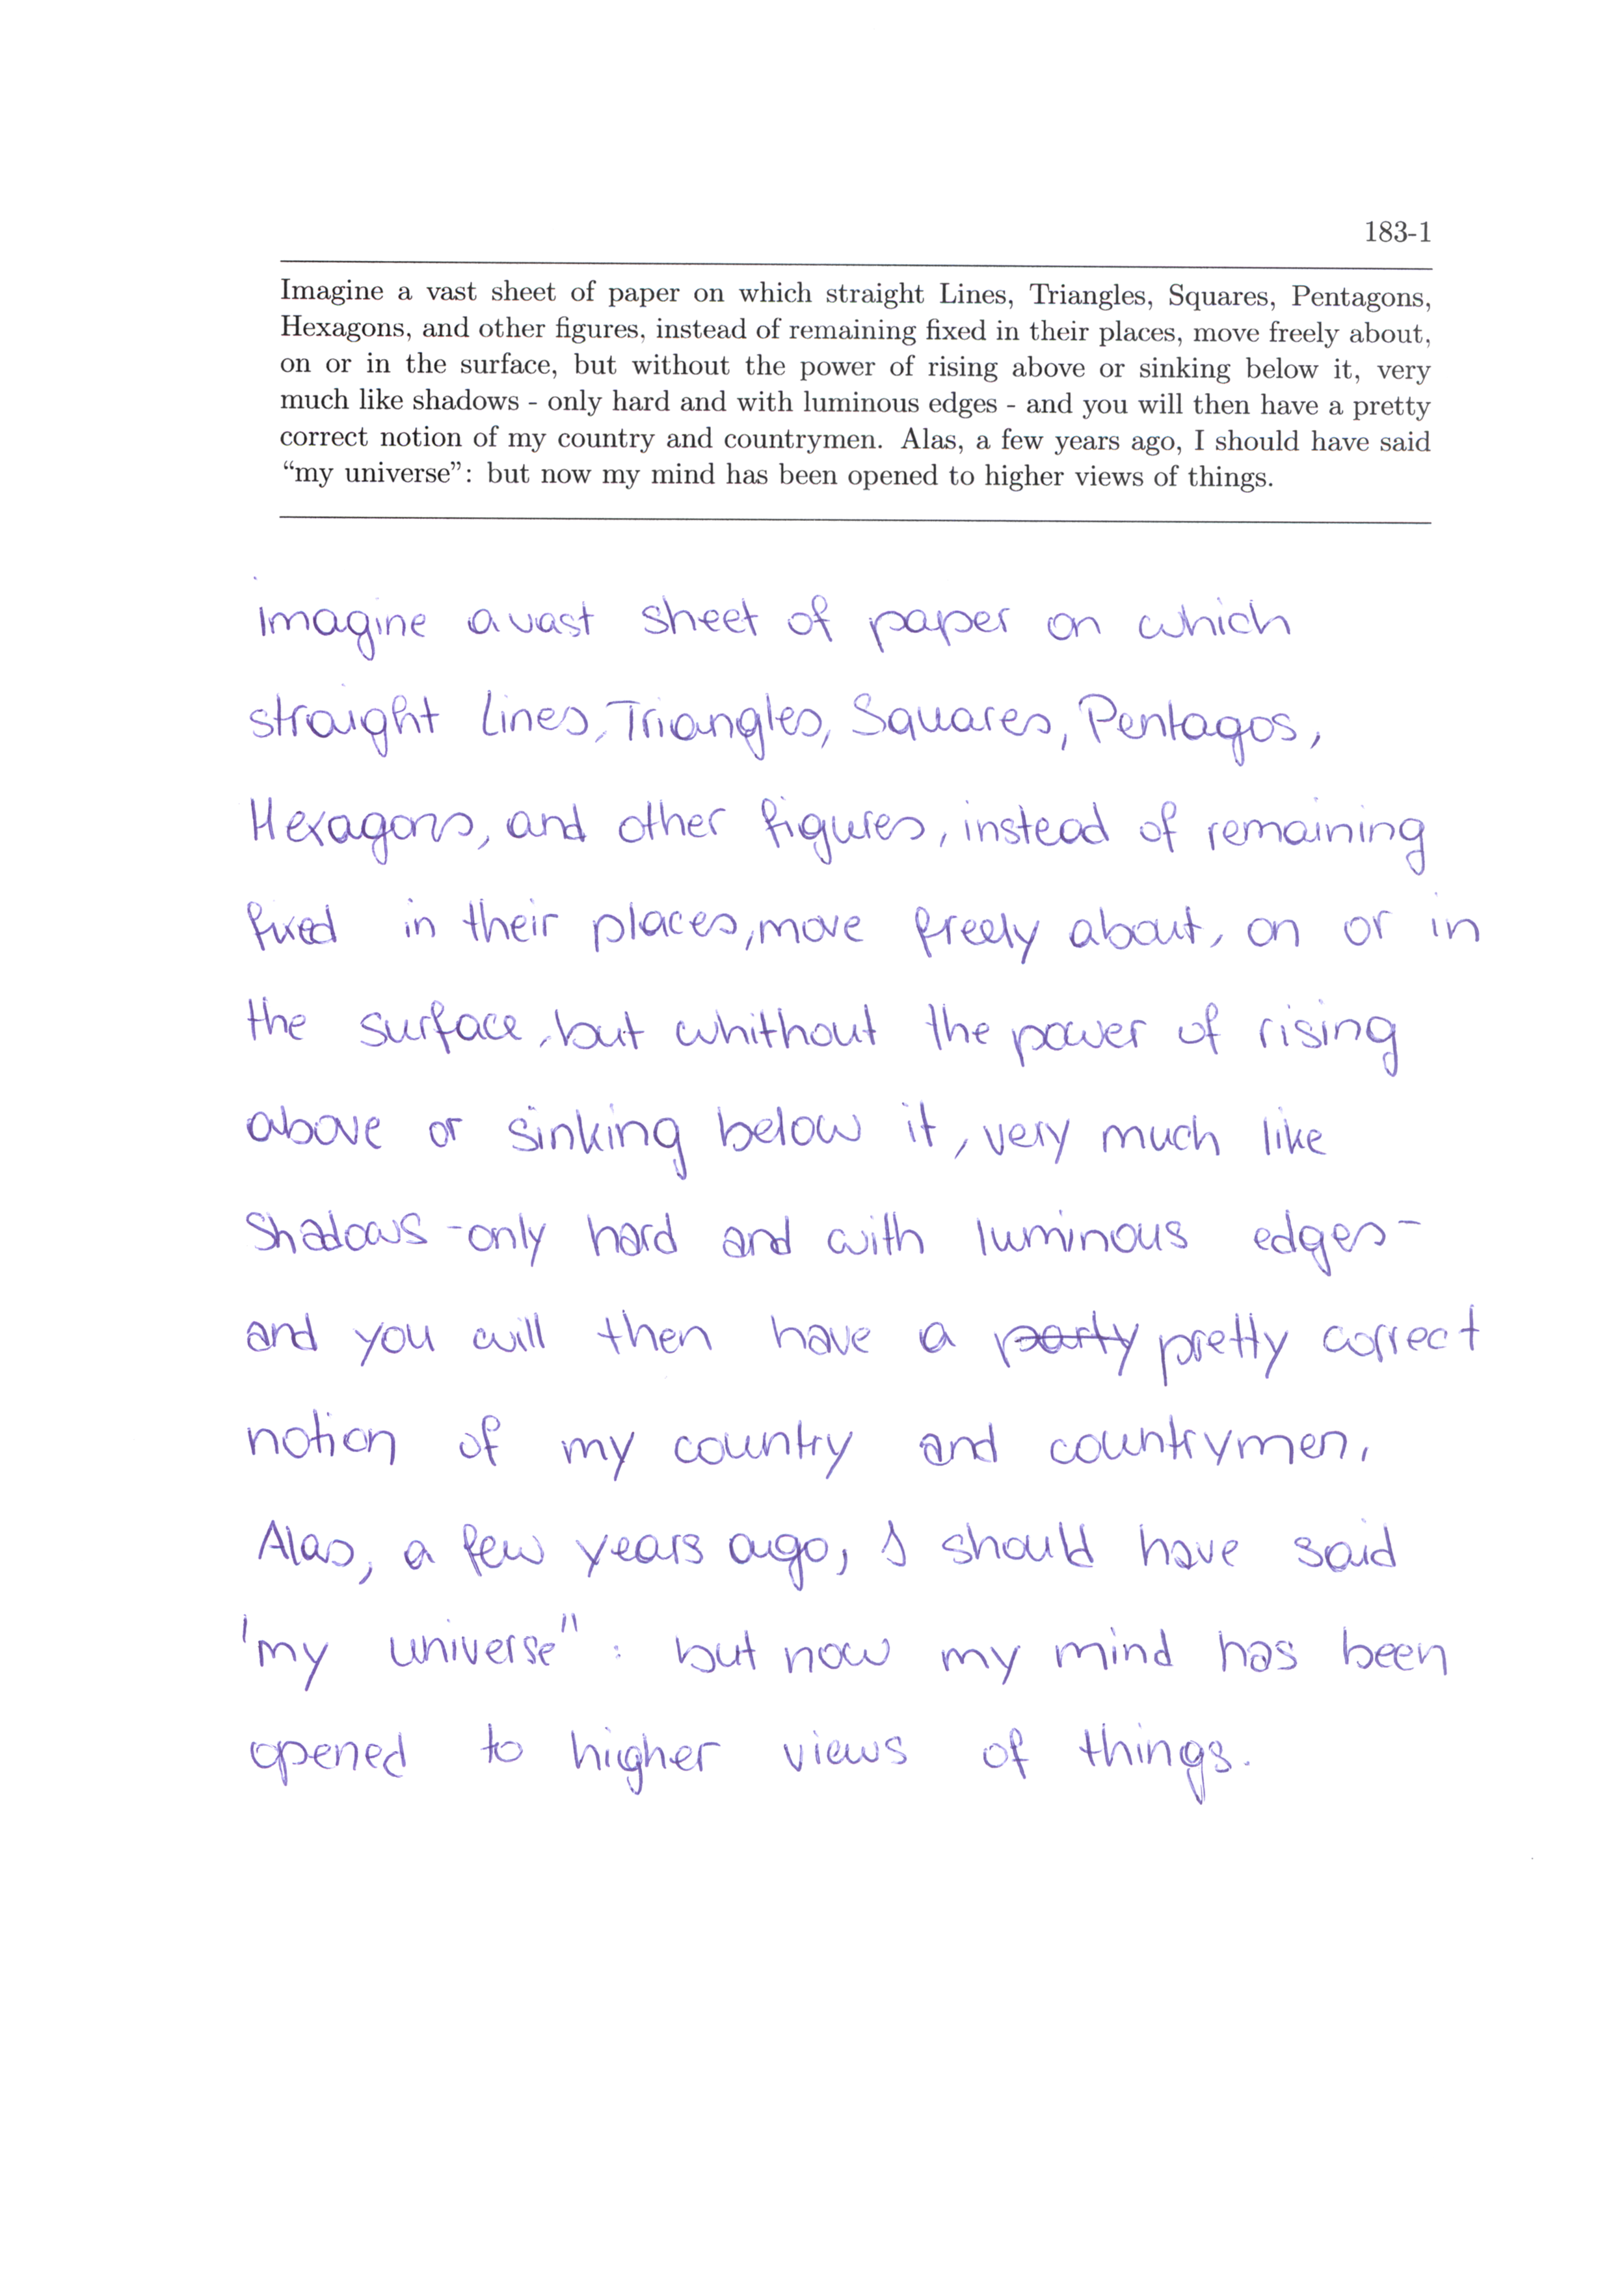 183-1
Imagine a vast sheet of paper on which straight Lines, Triangles, Squares, Pentagons,
Hexagons, and other figures, instead of remaining fixed in their places, move freely about,
on or in the surface, but without the power of rising above or sinking below it, very
much like shadows - only hard and with luminous edges - and you will then have a pretty
correct notion of my country and countrymen. Alas, a few years ago, I should have said
“my universe”: but now my mind has been opened to higher views of things.
Imagine a vast sheet of paper on which
straight Lines, Triangles, Squares, Pentagos,
Hexagons, and other figures, instead of remaining
fixed in their places, move freely about, on or in
the surface, but whithout the power of rising
above or sinking below it, very much like
Shadows - only hard and with luminous edges -
and you will then have a party pretty correct
notion of my country and countrymen.
Alas, a few years ago, I should have said
'my universe": but now my mind has been
opened to higher views of things.